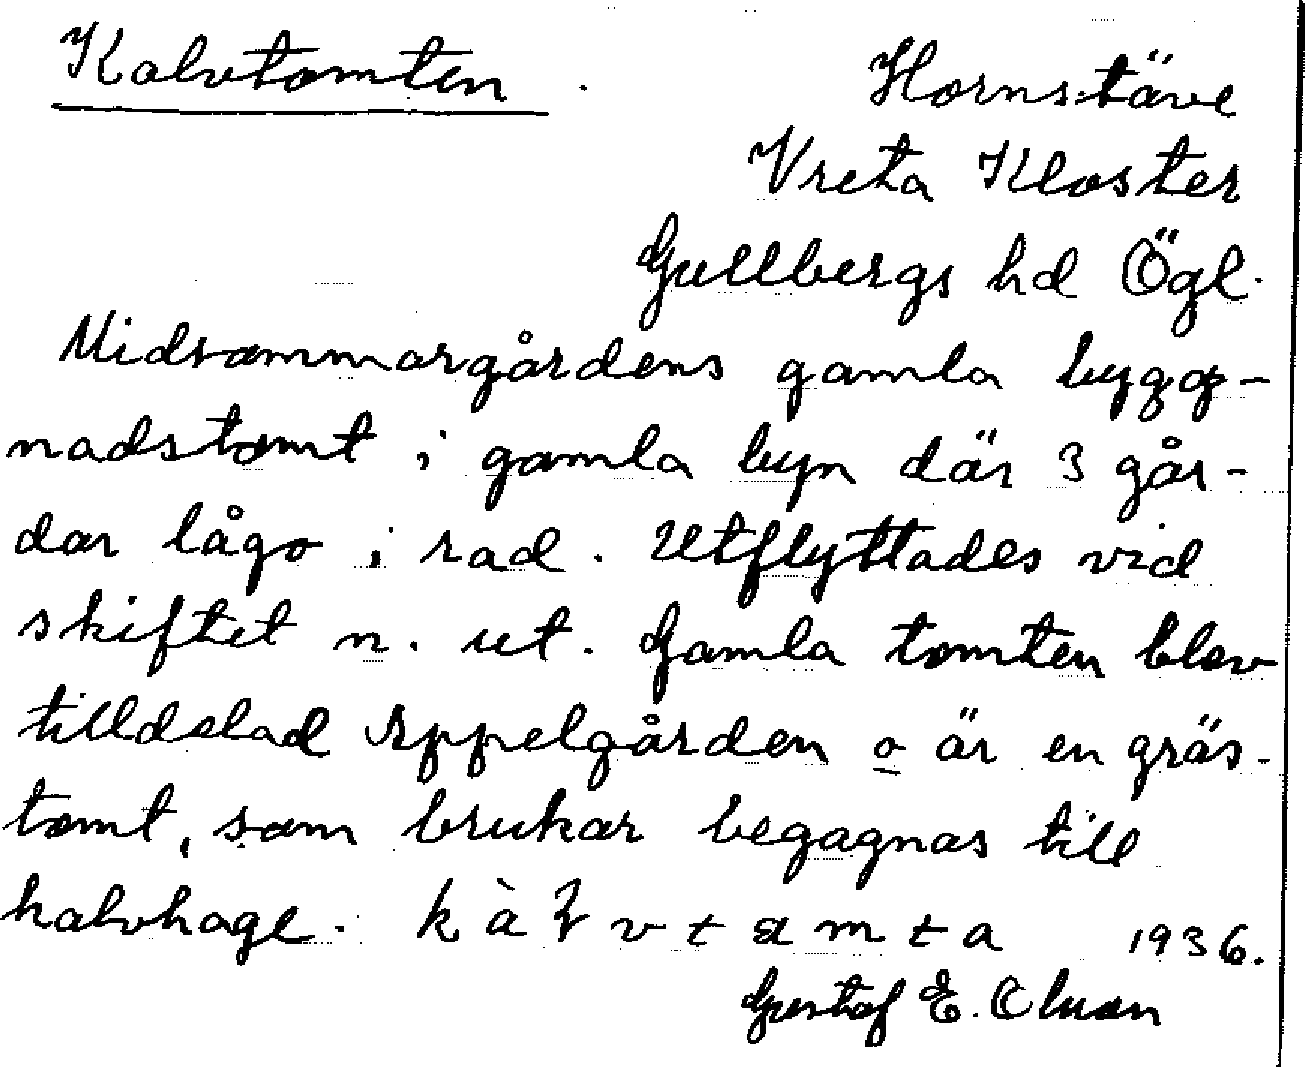 Kalvtomten.
Hornstäve
Vreta Kloster
Gullbergs hd Ögl.
Midsommargårdens gamla bygg-
nadstomt i gamla byn där 3 går-
dar lågo i rad. Utflyttades vid
skiftet n. ut. Gamla tomten blev
tilldelad Äppelgården o är en gräs-
tomt, som brukar begagnas till
kalvhage. 1936.
Gustaf E.